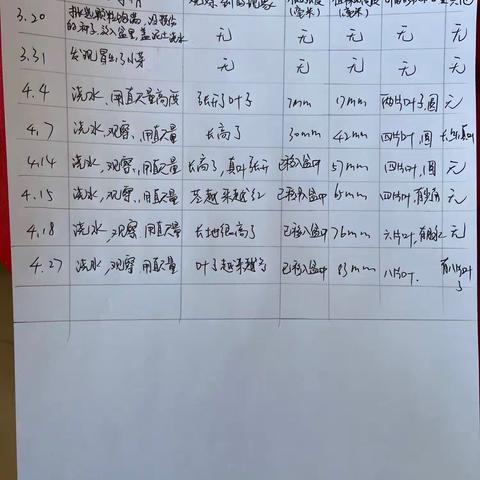 3.20 的种子,放入盆里,盖上土浇水 无 无 无 无 无
(毫米) (毫米)
3.31 发现冒出了小芽 无 无 无 无 无
4.4 浇水,用直尺量高度 张开叶子 7mm 17mm 两片叶子,圆 无
4.7 浇水,观察,用直尺量 长高了 30mm 42mm 四片叶,圆
4.14 浇水,观察,用直尺量 长高了,真叶张开 已移入盆中 57mm 四片叶,圆 无
4.15 浇水,观察,用直尺量 茎越来越红 已移入盆中 65mm 四片叶,有 无
4.18 浇水,观察,用直尺量 长地很高了 已移入盆中 76mm 六片叶,有 无
4.27 浇水,观察,用直尺量 叶子越来越 已移入盆中 83mm 八片叶. 有八片叶
了